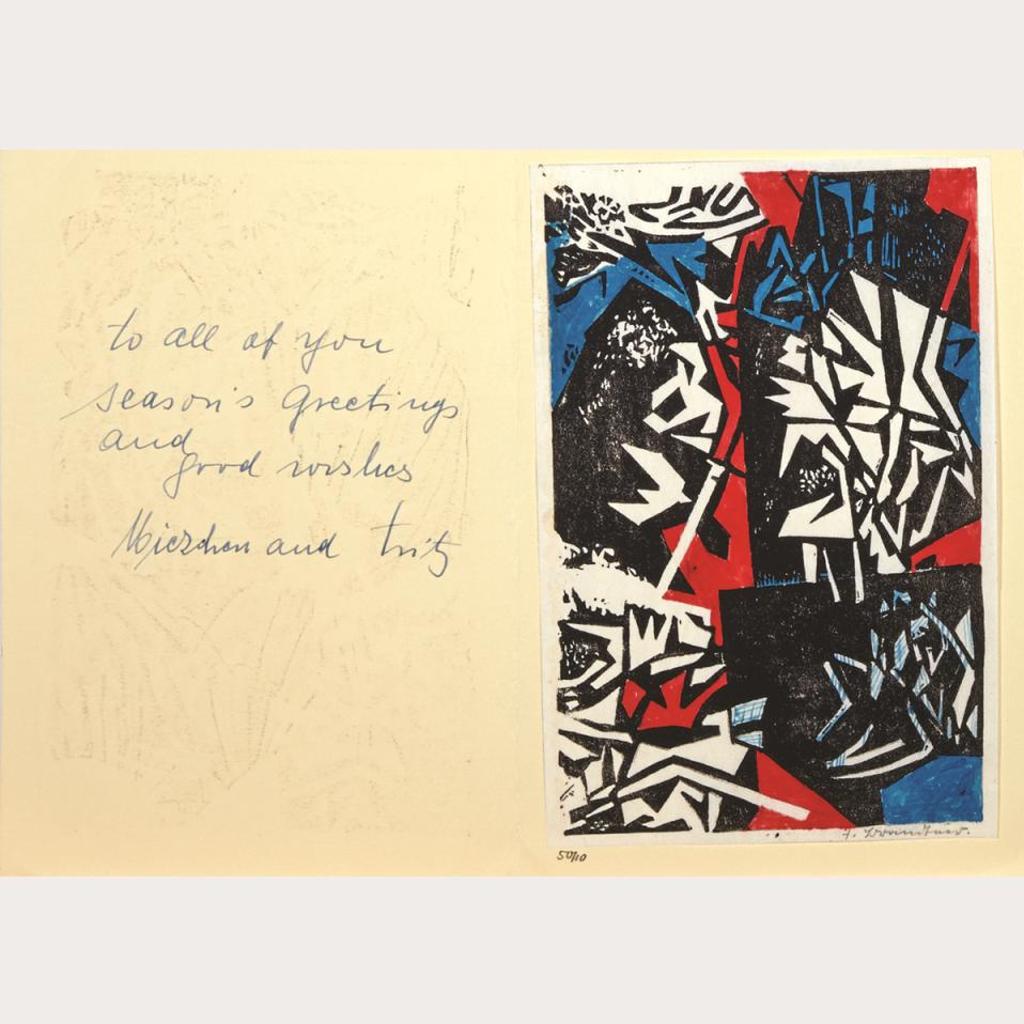 to all of you
season's greetings
and
good wishes
Mieschen and Fritz
50/10
F. Brandtner.